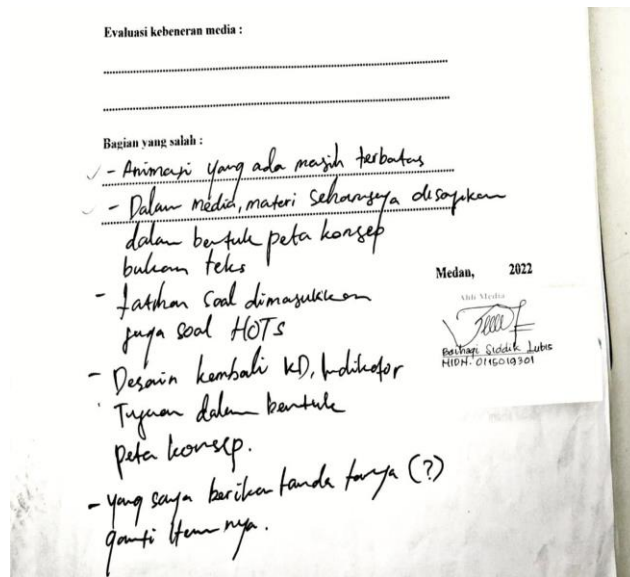 Evaluasi kebeneran media :
Bagian yang salah :
- Animasi yang ada masih terbatas
- Dalam media, materi seharusnya disajikan
dalam bentuk peta konsep
bukan teks
- Latihan soal dimasukkan
juga soal HOTS
- Desain kembali KD, Indikator
Tujuan dalam bentuk
peta konsep.
- yang saya berikan tanda tanya (?)
ganti itemnya.
Medan, 2022
Ahli Media
Siddik Lubis
NIDN. 0116019301